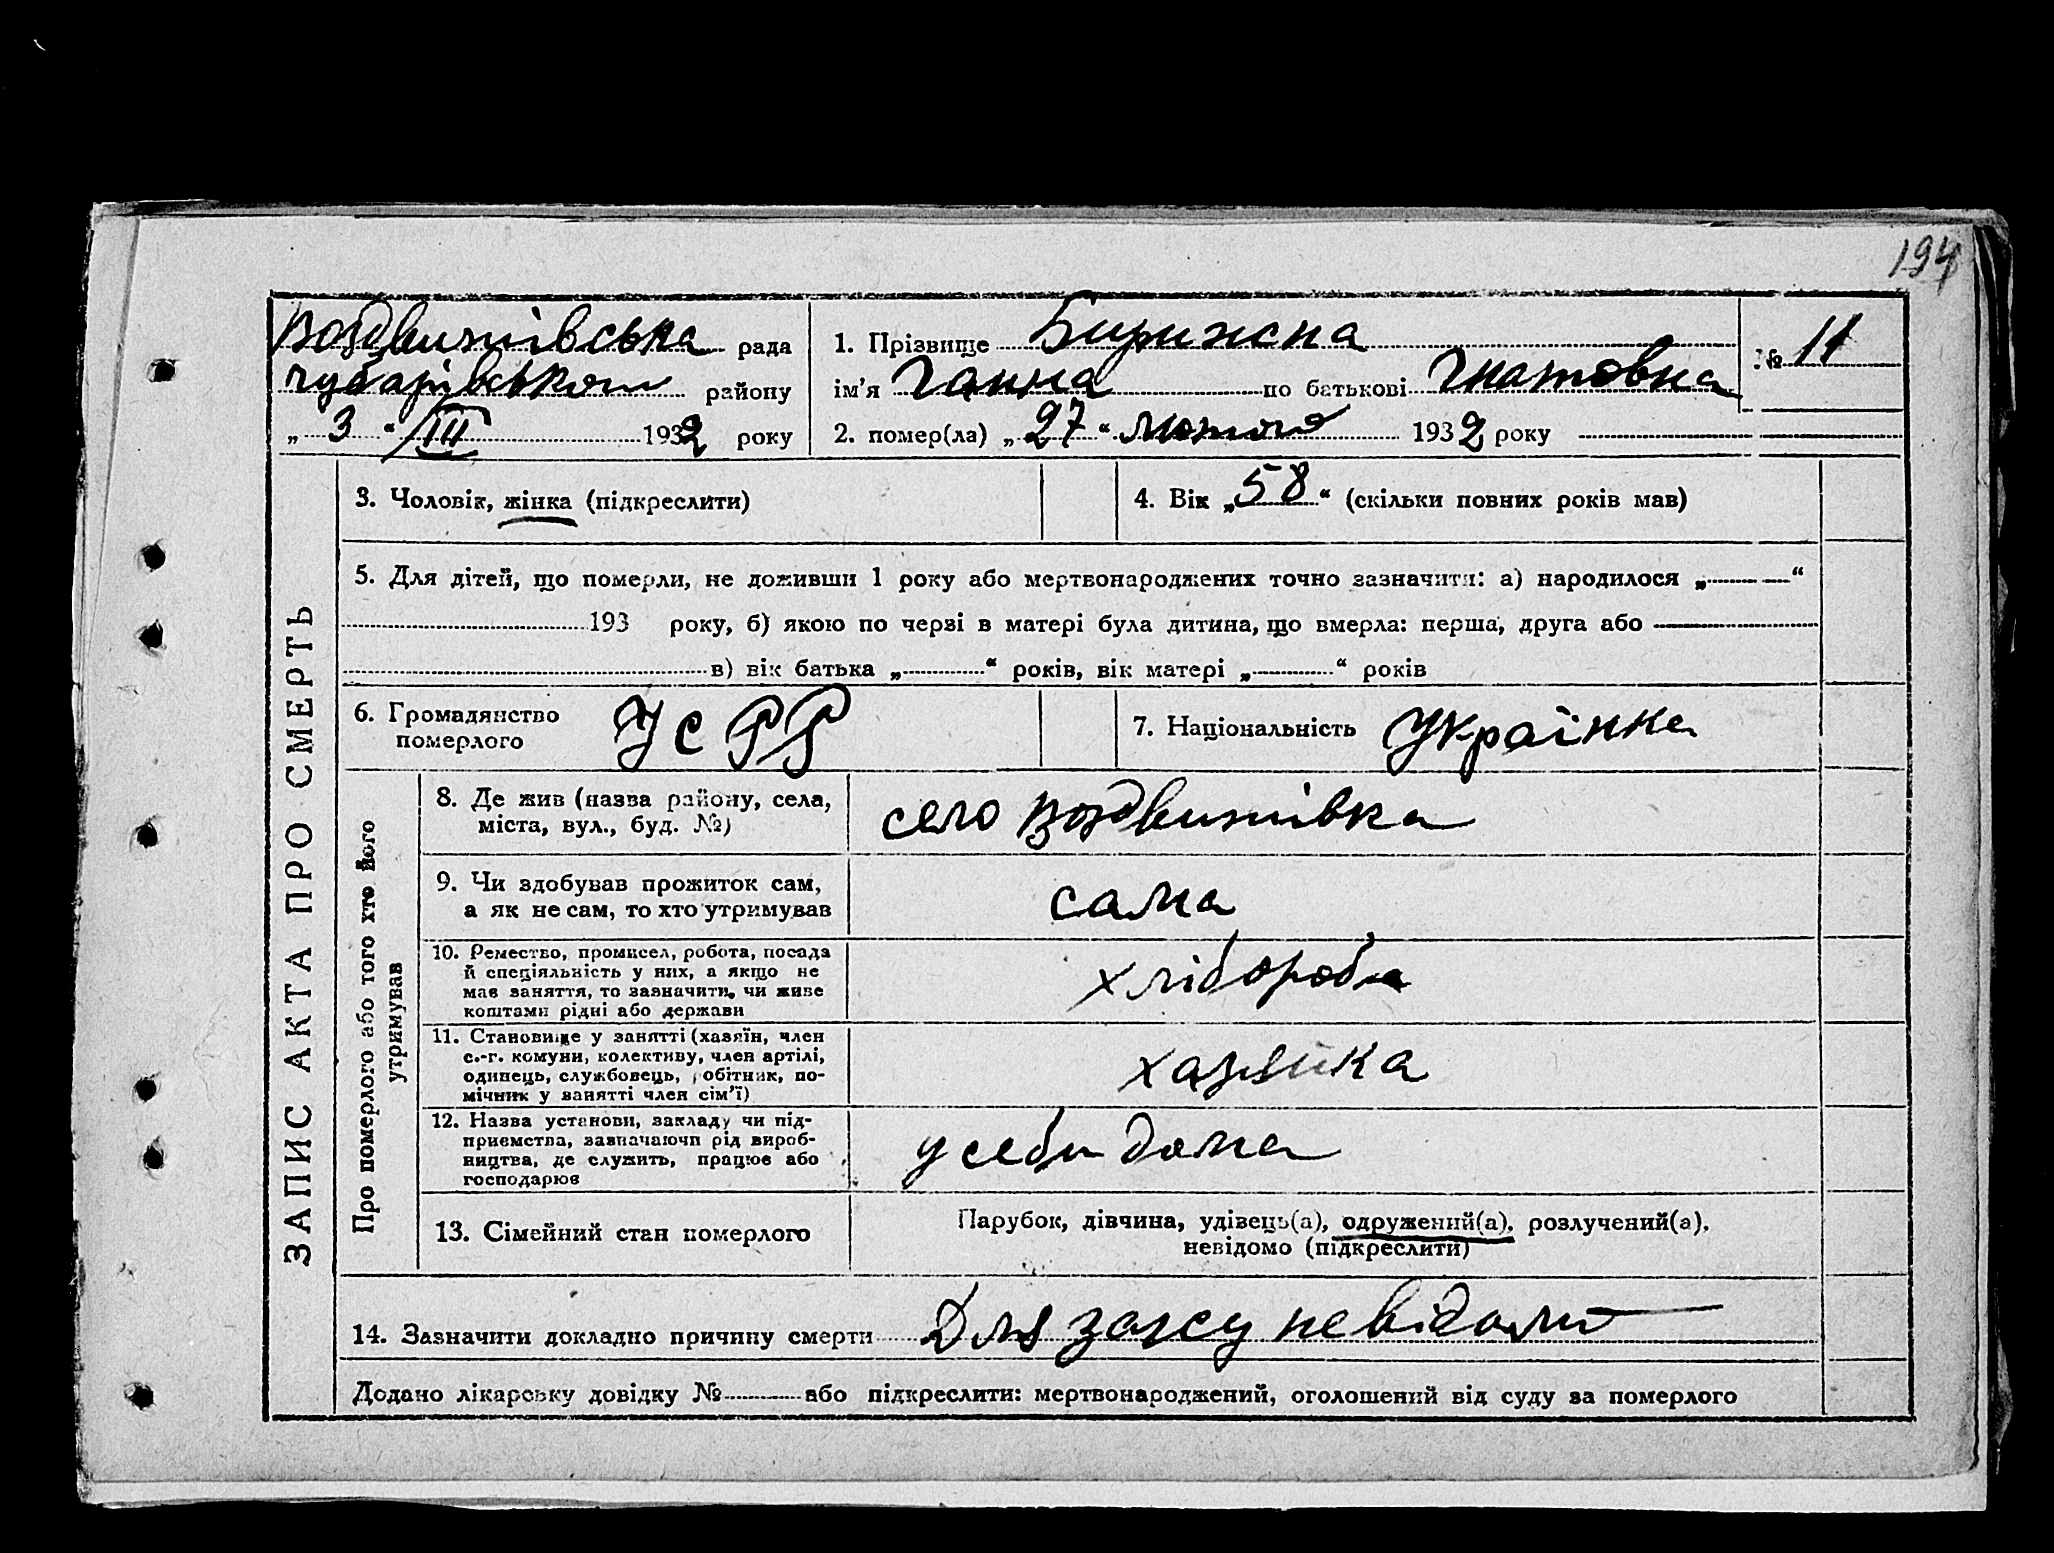 194
Воздвижівська рада
Чубарівського району
„ 3 “ III 1932 року
1. Прізвище Бирижна
ім’я Ганна по батькові Гнатовна
№ 11
2. помер(ла) „ 27 “ лютого 1932 року
ЗАПИС АКТА ПРО СМЕРТЬ
3. Чоловік, жінка (підкреслити)
4. Вік „ 58 “ (скільки повних років мав)
5. Для дітей, що померли, не доживши 1 року або мертвонароджених точно зазначити: а) народилося „ — “
193 року, б) якою по черзі в матері була дитина, що вмерла: перша, друга або
в) вік батька „ “ років, вік матері „ “ років
6. Громадянство
померлого
УСРР
7. Національність Українка
Про померлого або того хто його
утримував
8. Де жив (назва району, села,
міста, вул., буд. №)
село Воздвижівка
9. Чи здобував прожиток сам,
а як не сам, то хто утримував
сама
10. Ремество, промисел, робота, посада
й спеціяльність у них, а якщо не
мав заняття, то зазначити, чи живе
коштами рідні або держави
хлібороба
11. Становище у занятті (хазяїн, член
с.-г. комуни, колективу, член артілі,
одинець, службовець, робітник, по-
мічник у занятті член сім’ї)
хазяйка
12. Назва установи, закладу чи під-
приємства, зазначаючи рід вироб-
ництва, де служить, працює або
господарює
у себи дома
13. Сімейний стан померлого
Парубок, дівчина, удівець(а), одружений(а), розлучений(а),
невідомо (підкреслити)
14. Зазначити докладно причину смерти Для загсу невідомо
Додано лікарську довідку № або підкреслити: мертвонароджений, оголошений від суду за померлого